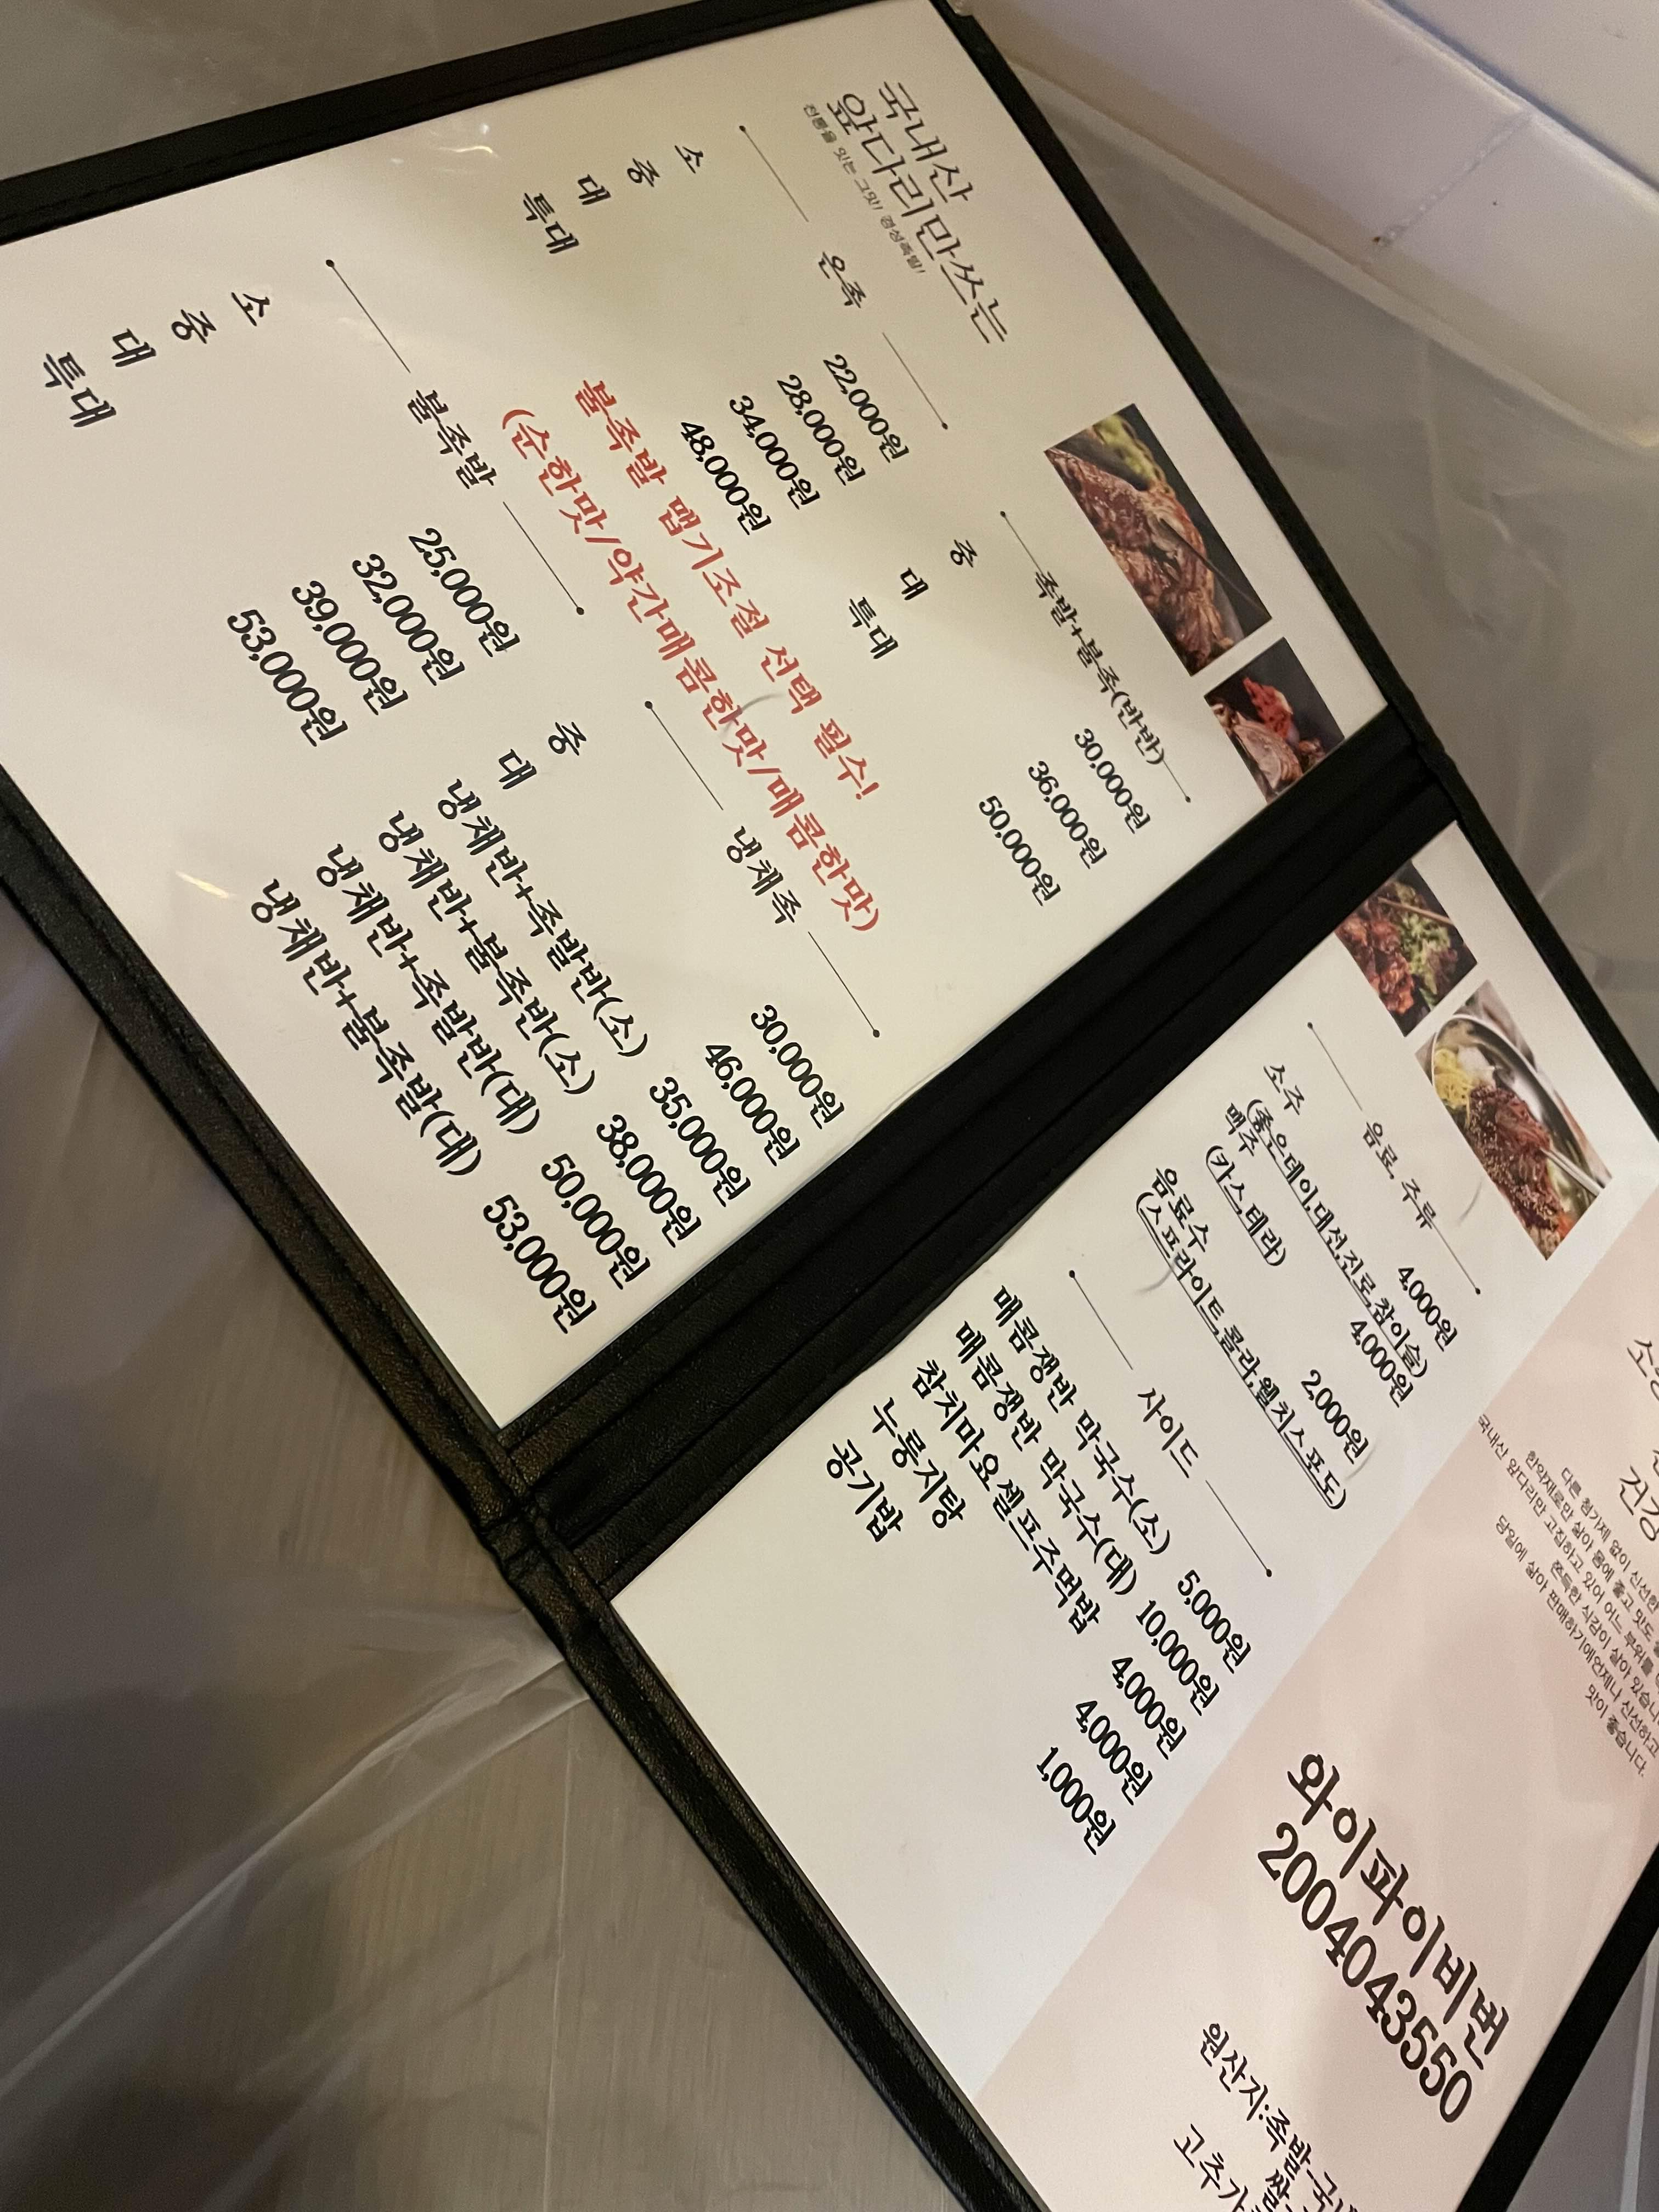 국내산
앞다리만쓰는
전통을 잇는 그맛! 경성족발!
온족
소 22,000원
중 28,000원
대 34,000원
특대 48,000원
족발+불족(반반)
중 30,000원
대 36,000원
특대 50,000원
불족발 맵기조절 선택 필수!
(순한맛/약간매콤한맛/매콤한맛)
불족발
소 25,000원
중 32,000원
대 39,000원
특대 53,000원
냉채족
중 30,000원
대 46,000원
냉채반+족발반(소) 35,000원
냉채반+불족반(소) 38,000원
냉채반+족발반(대) 50,000원
냉채반+불족발(대) 53,000원
음료, 주류
소주 4,000원
(좋은데이,대선,진로,참이슬)
맥주 4,000원
(카스,테라)
음료수 2,000원
(스프라이트,콜라,웰치스포도)
사이드
매콤쟁반 막국수(소) 5,000원
매콤쟁반 막국수(대) 10,000원
참치마요셀프주먹밥 4,000원
누룽지탕 4,000원
공기밥 1,000원
건강
다른 첨가제 없이 신선한
한약재로만 삶아 몸에 좋고 맛도
국내산 앞다리만 고집하고 있어 어느 부위를
쫀득한 식감이 살아 있습니
당일에 삶아 판매하기에언제나 신선하고
맛이 좋습니다.
와이파이비번
2004043550
원산지:족발-국내
쌀-
고추가